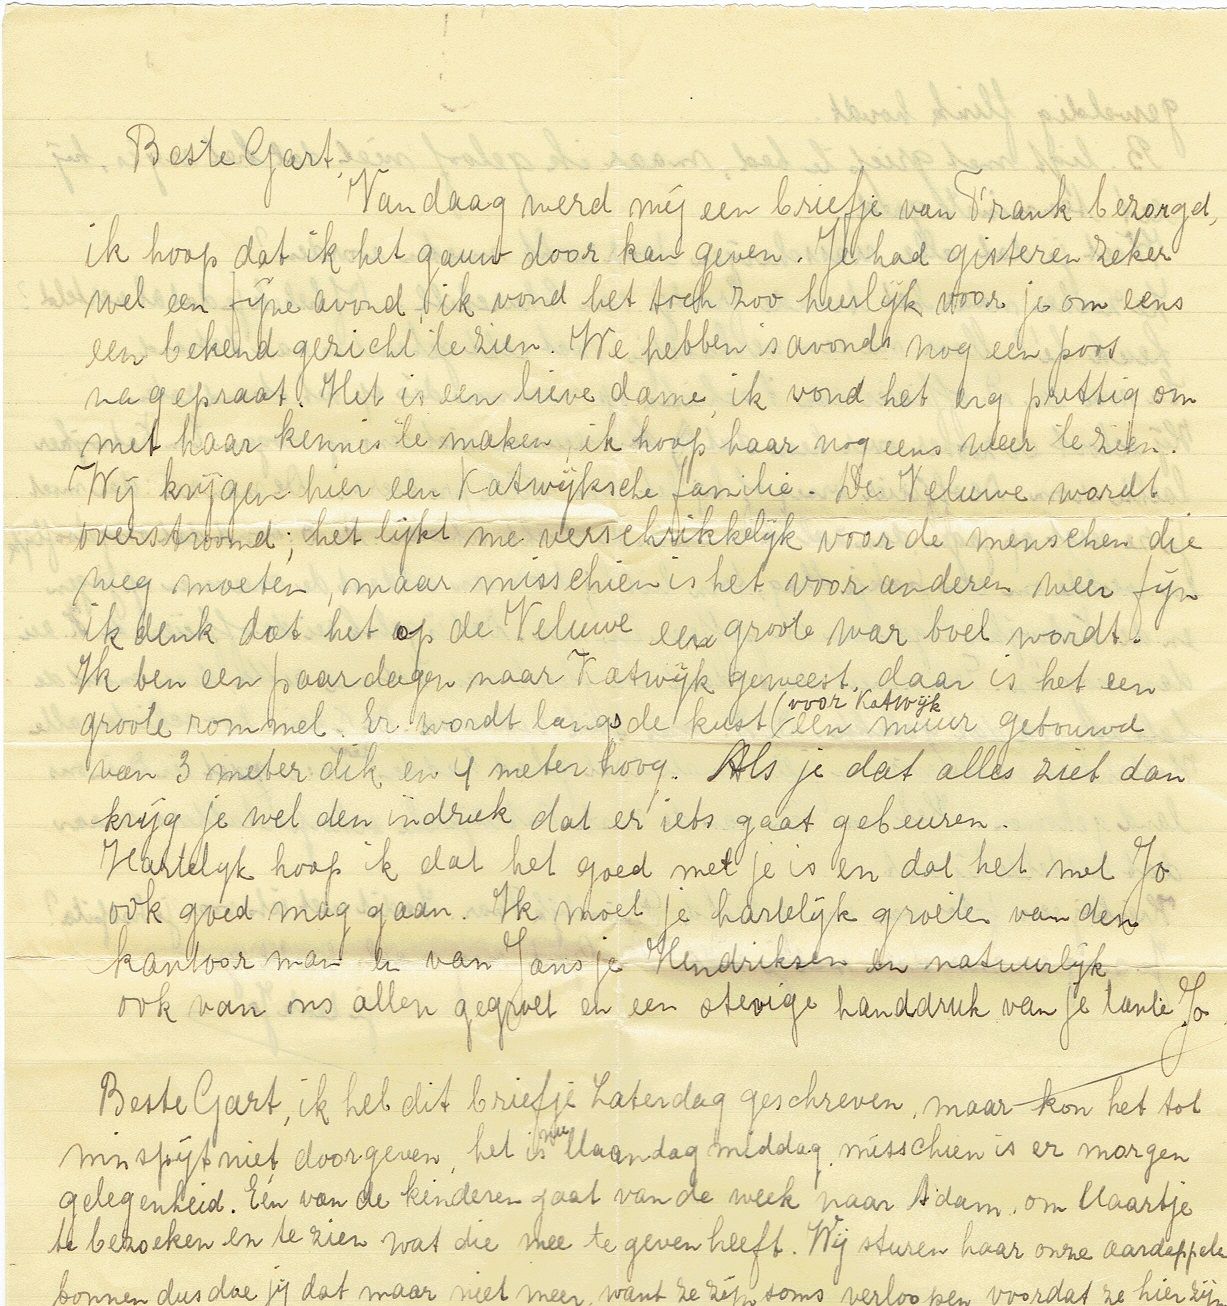 Beste Gart,
Vandaag werd mij een briefje van Frank bezorgd,
ik hoop dat ik het gauw door kan geven. Je had gisteren zeker
wel een fijne avond, ik vond het toch zoo heerlijk voor je om eens
een bekend gezicht te zien. We hebben s avonds nog een poos
nagepraat. Het is een lieve dame, ik vond het erg prettig om
met haar kennis te maken, ik hoop haar nog eens weer te zien.
Wij krijgen hier een Katwijksche familie. De Veluwe wordt
overstroomd; het lijkt me verschrikkelijk voor de menschen die
weg moeten, maar misschien is het voor anderen weer fijn
ik denk dat het op de Veluwe een groote war boel wordt.
Ik ben een paar dagen naar Katwijk geweest, daar is het een
groote rommel. Er wordt langs de kust (voor Katwijk een muur gebouwd
van 3 meter dik en 4 meter hoog. Als je dat alles ziet dan
krijg je wel den indruk dat er iets gaat gebeuren.
Hartelijk hoop ik dat het goed met je is en dat het met Jo
ook goed mag gaan. Ik moet je hartelijk groeten van den
kantoor man en van Jansje Hendriksen en natuurlijk
ook van ons allen gegroet en een stevige handdruk van je tante Jo
Beste Gart, ik heb dit briefje Zaterdag geschreven, maar kon het tot
min spijt niet doorgeven, het is nu Maandag middag, misschien is er morgen
gelegenheid. Eén van de kinderen gaat van de week naar A'dam, om Maartje
te bezoeken en te zien wat die mee te geven heeft. Wij sturen haar onze aardappele
bonnen dus doe jij dat maar niet meer, want ze zijn soms verloopen voordat ze hier zijn